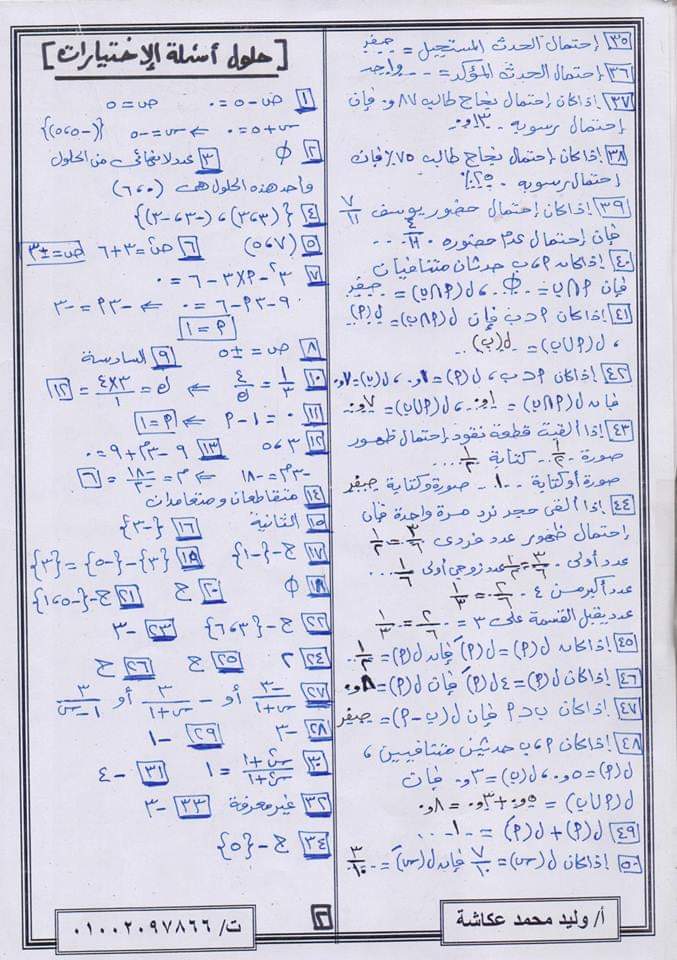 ٣٥ إحتمال الحدث المستحيل = صفر
٣٦ إحتمال الحدث المؤكد = واحد
٣٧ إذا كان إحتمال نجاح طالب ٨٧و. فإن
إحتمال رسوبه ١٣و.
٣٨ إذا كان إحتمال نجاح طالب ٧٥٪ فإن
إحتمال رسوبه ٢٥٪
٣٩ إذا كان إحتمال حضور يوسف ٧/١١
فإن إحتمال عدم حضوره ٤/١١
٤٠ إذا كان P، ب حدثان متنافيان
فإن P∩ب = ∅، ل(P∩ب) = صفر
٤١ إذا كان P⊂ب فإن ل(P∩ب) = ل(P)
، ل(P∪ب) = ل(ب)
٤٢ إذا كان P⊂ب، ل(P) = ١و.، ل(ب) = ٧و.
فإن ل(P∩ب) = ١و.، ل(P∪ب) = ٧و.
٤٣ إذا ألقيت قطعة نقود إحتمال ظهور
صورة ١/٢ كتابة ١/٢
صورة أو كتابة ١ صورة وكتابة صفر
٤٤ إذا ألقى حجر نرد مرة واحدة فإن
إحتمال ظهور عدد فردى ٣/٦ = ١/٢
عدد أولى ٣/٦ = ١/٢ عدد زوجى أولى ١/٦
عدد أكبر من ٤ ٢/٦ = ١/٣
عدد يقبل القسمة على ٣ = ٢/٦ = ١/٣
٤٥ إذا كان ل(P) = ل(P َ) فإن ل(P) = ١/٢
٤٦ إذا كان ل(P) = ٤ل(P َ) فإن ل(P) = ٨و.
٤٧ إذا كان ب⊂P فإن ل(ب-P) = صفر
٤٨ إذا كان P، ب حدثين متنافيين،
ل(P) = ٥و.، ل(ب) = ٣و. فإن
ل(P∪ب) = ٥و. + ٣و. = ٨و.
٤٩ ل(P) + ل(P َ) = ١
٥٠ إذا كان ل(س) = ٧/١٠ فإن ل(س َ) = ٣/١٠
[حلول أسئلة الإختيارات]
١ ص - ٥ = ٠ ص = ٥
س + ٥ = ٠ ⇐ س = -٥ {(-٥، ٥)}
٢ ∅ ٣ عدد لا نهائى من الحلول
وأحد هذه الحلول هى (٠، ٦)
٤ {(٣، ٣)، (-٣، -٣)}
٥ (٧، ٥) ٦ ص² = ٣ + ٦ ص = ±٣
٧ ٣² - P×٣ - ٦ = ٠
٩ - ٣P - ٦ = ٠ ⇐ -٣P = -٣
P = ١
٨ ص = ±٥ ٩ السادسة
١٠ ١/٣ = ٤/ك ⇐ ك = ٣×٤/١ = ١٢
١١ ٠ = ١ - P ⇐ P = ١
١٢ ٣، ٥ ١٣ ٩ - ٣م + ٩ = ٠
-٣م = -١٨ ⇐ م = -١٨/-٣ = ٦
١٤ متقاطعان ومتعامدان
١٥ الثانية ١٦ {-٣}
١٧ ح - {-١} ١٨ {٣} - {-٥} = {٣}
١٩ ∅ ٢٠ ح ٢١ ح - {-٥، ١}
٢٢ ح - {٣، ٦} ٢٣ -٣
٢٤ ٢ ٢٥ ح ٢٦ ح
٢٧ -٣/س+١ أو -٣/س+١ أو ٣/-١-س
٢٨ -٣ ٢٩ -١
٣٠ س²+١/س²+١ = ١ ٣١ -٤
٣٢ غير معرفة ٣٣ -٣
٣٤ ح - {٥}
أ/ وليد محمد عكاشة
٢
ت/ ٠١٠٠٢٠٩٧٨٦٦